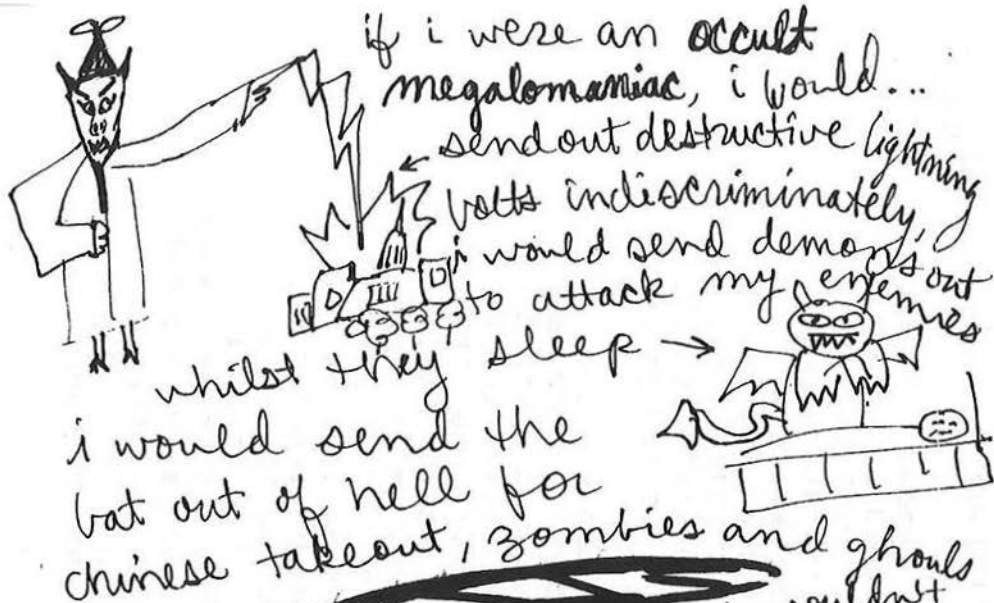 if i were an occult
megalomaniac, i would...
send out destructive lightning
volts indiscriminately,
i would send demons out
to attack my enemies
whilst they sleep
i would send the
bat out of hell for
chinese takeout, zombies and ghouls
wouldn't